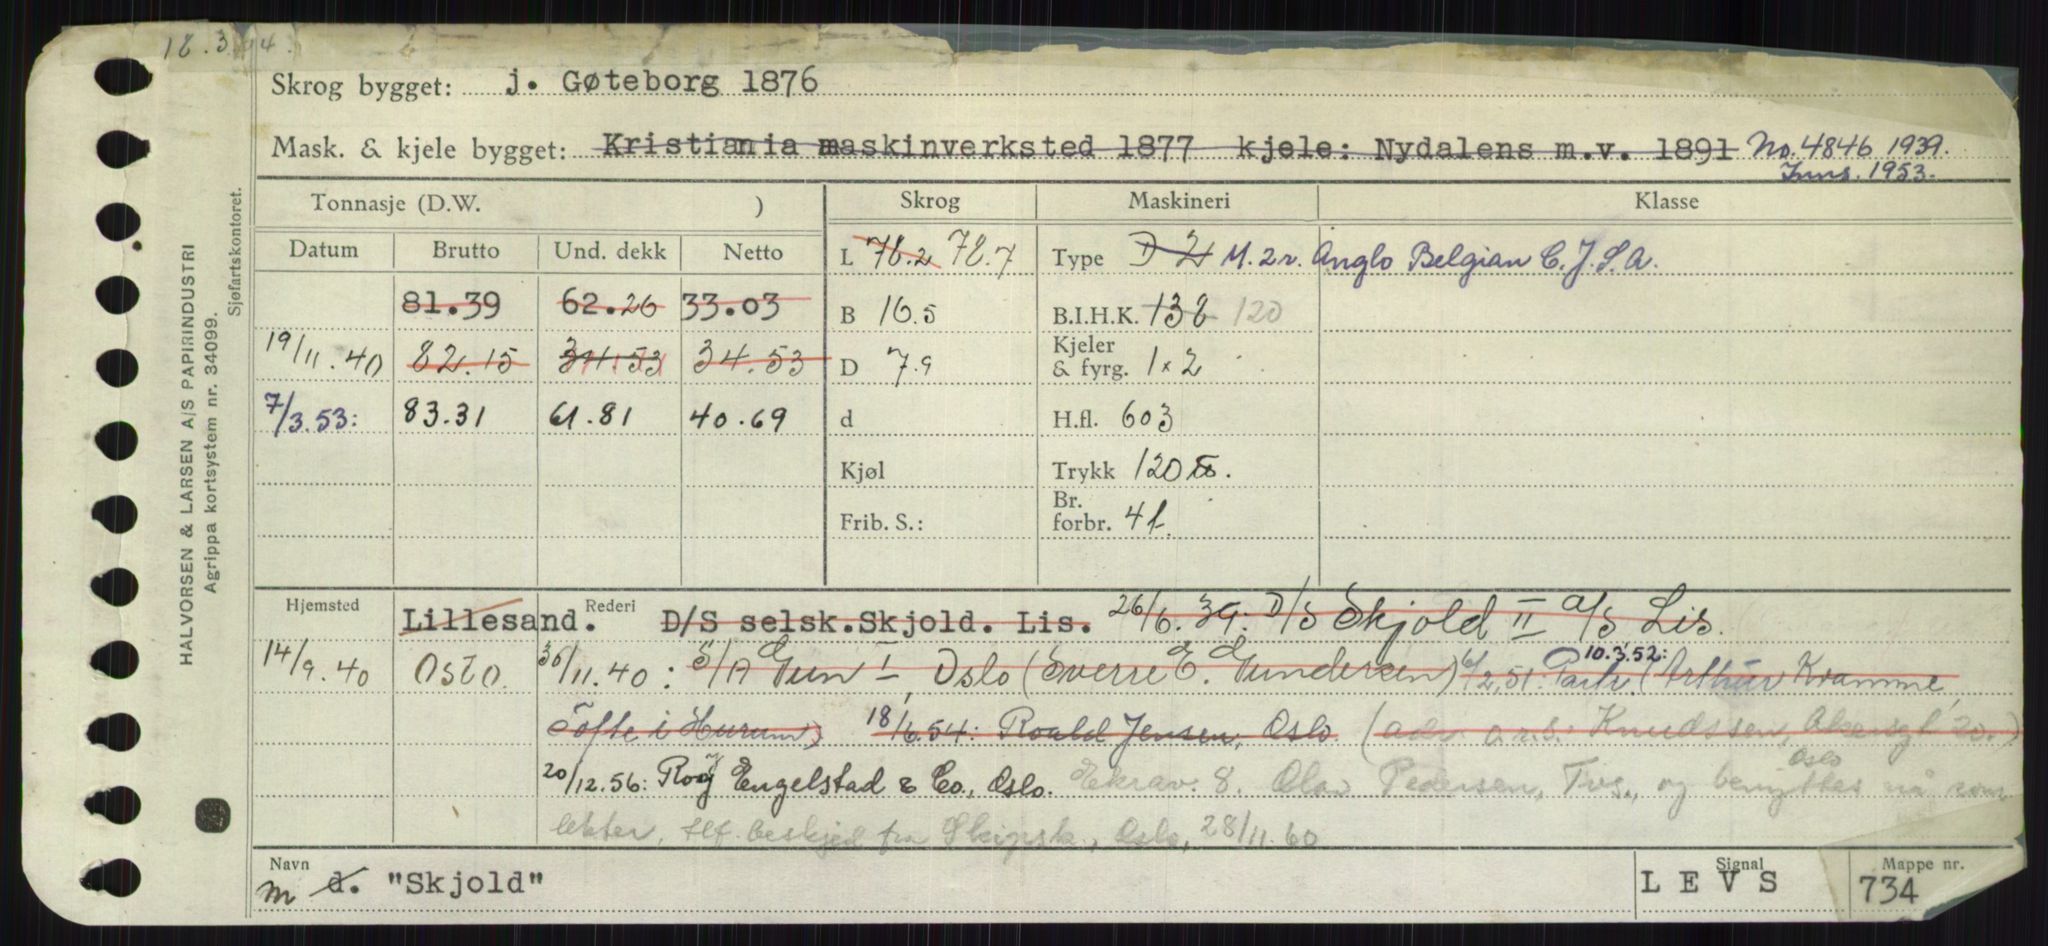 18.3.14.
Skrog bygget: j. Gøteborg 1876
Mask. & kjele bygget: Kristiania maskinverksted 1877 kjele: Nydalens m.v. 1891 No. 4846 1939.
Inns. 1953.
Tonnasje (D.W. ) Skrog Maskineri Klasse
Datum Brutto Und. dekk Netto L 78.2 78.7 Type D 2 M. 2 r. Anglo Belgian C.J.S.A.
81.39 62.26 33.03 B 16.5 B.I.H.K. 138 120
19/11.40 82.15 34.53 34.53 D 7.9 Kjeler & fyrg. 1x2
7/3.53: 83.31 61.81 40.69 d H.fl. 603
Kjøl Trykk 120
Frib. S.: Br. forbr. 4 t.
Hjemsted Lillesand. Rederi D/S selsk.Skjold. Lis. 26/6.39. D/S Skjold II a/s, Lis.
14/9.40 Oslo. 30/11.40: S/A Gun I, Oslo (Sverre E. Gundersen) 6/2.51. Partr. 10.3.52: (Arthur Kramme,
Tofte i Hurum) 18/6.54: Roald Jensen, Oslo. (adr. a.r.s. Knudssen, Akersgt. 20.)
Oslo
20/12.56: Roy Engelstad & Co., Oslo. Olav Pedersen, Tvs., og benyttes nå som
lekter, tlf. beskjed fra Skipsk., Oslo, 28/11.60
Navn m d. "Skjold" Signal L E V S Mappe nr. 734
HALVORSEN & LARSEN A/S PAPIRINDUSTRI
Agrippa kortsystem nr. 34099.
Sjøfartskontoret.